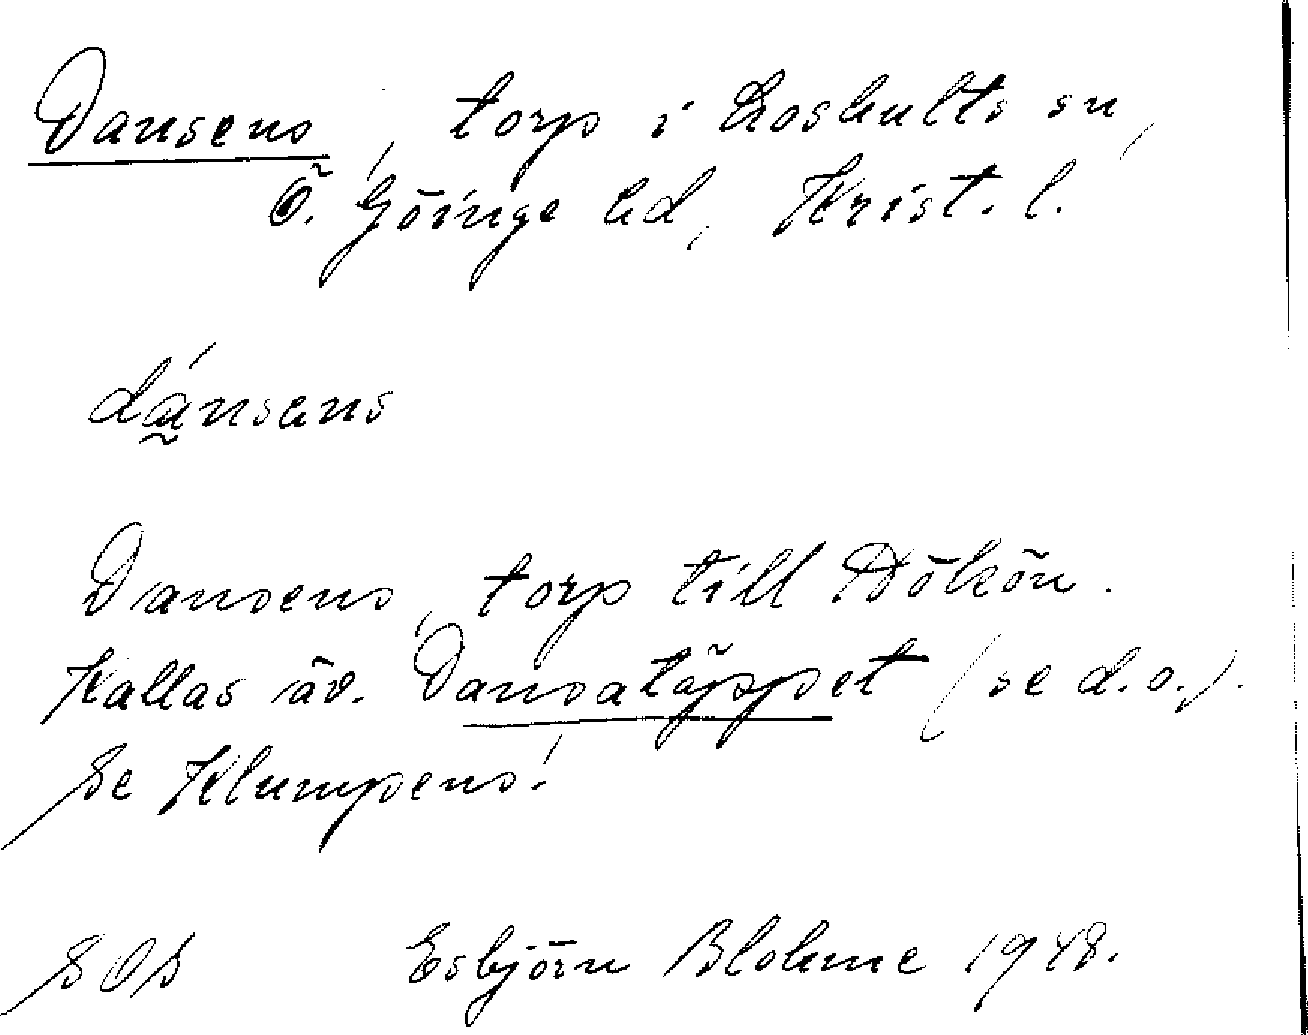 Dansens, torp i Loshults sn,
Ö. Göinge hd, Krist. l.
dánsens
Dansens, torp till Dökön.
Kallas äv. Dansatäppet (se d.o.).
Se Klumpens!
SOS Esbjörn Blohme 1948.